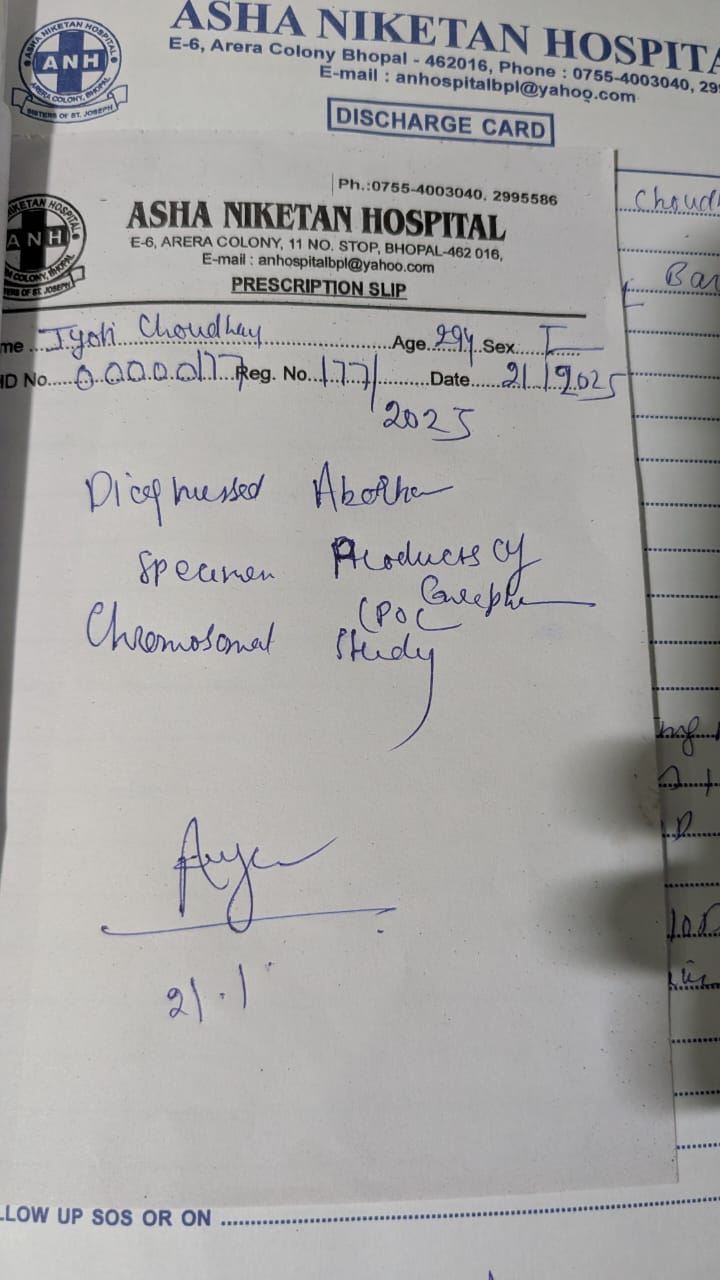 ASHA NIKETAN HOSPITA
E-6, Arera Colony Bhopal - 462016, Phone : 0755-4003040, 29
E-mail : anhospitalbpl@yahoo.com
ASHA NIKETAN HOSPITAL
ANH
ARERA COLONY, BHOPAL
SISTERS OF ST. JOSEPH
DISCHARGE CARD
Ph.:0755-4003040, 2995586
ETAN HOSPITAL
ANH
COLONY, BHOPAL
ERS OF ST. JOSEPH
ASHA NIKETAN HOSPITAL
E-6, ARERA COLONY, 11 NO. STOP, BHOPAL-462 016,
E-mail : anhospitalbpl@yahoo.com
PRESCRIPTION SLIP
me Jyoti Choudhay Age 29y Sex F
ID No. 0000177 Reg. No. 177/ Date 21/1/2025
2025
Abortion
Specimen Products of
Conception
(POC
Chromosomal Study
21.1
Choud
Bar
mg
LLOW UP SOS OR ON